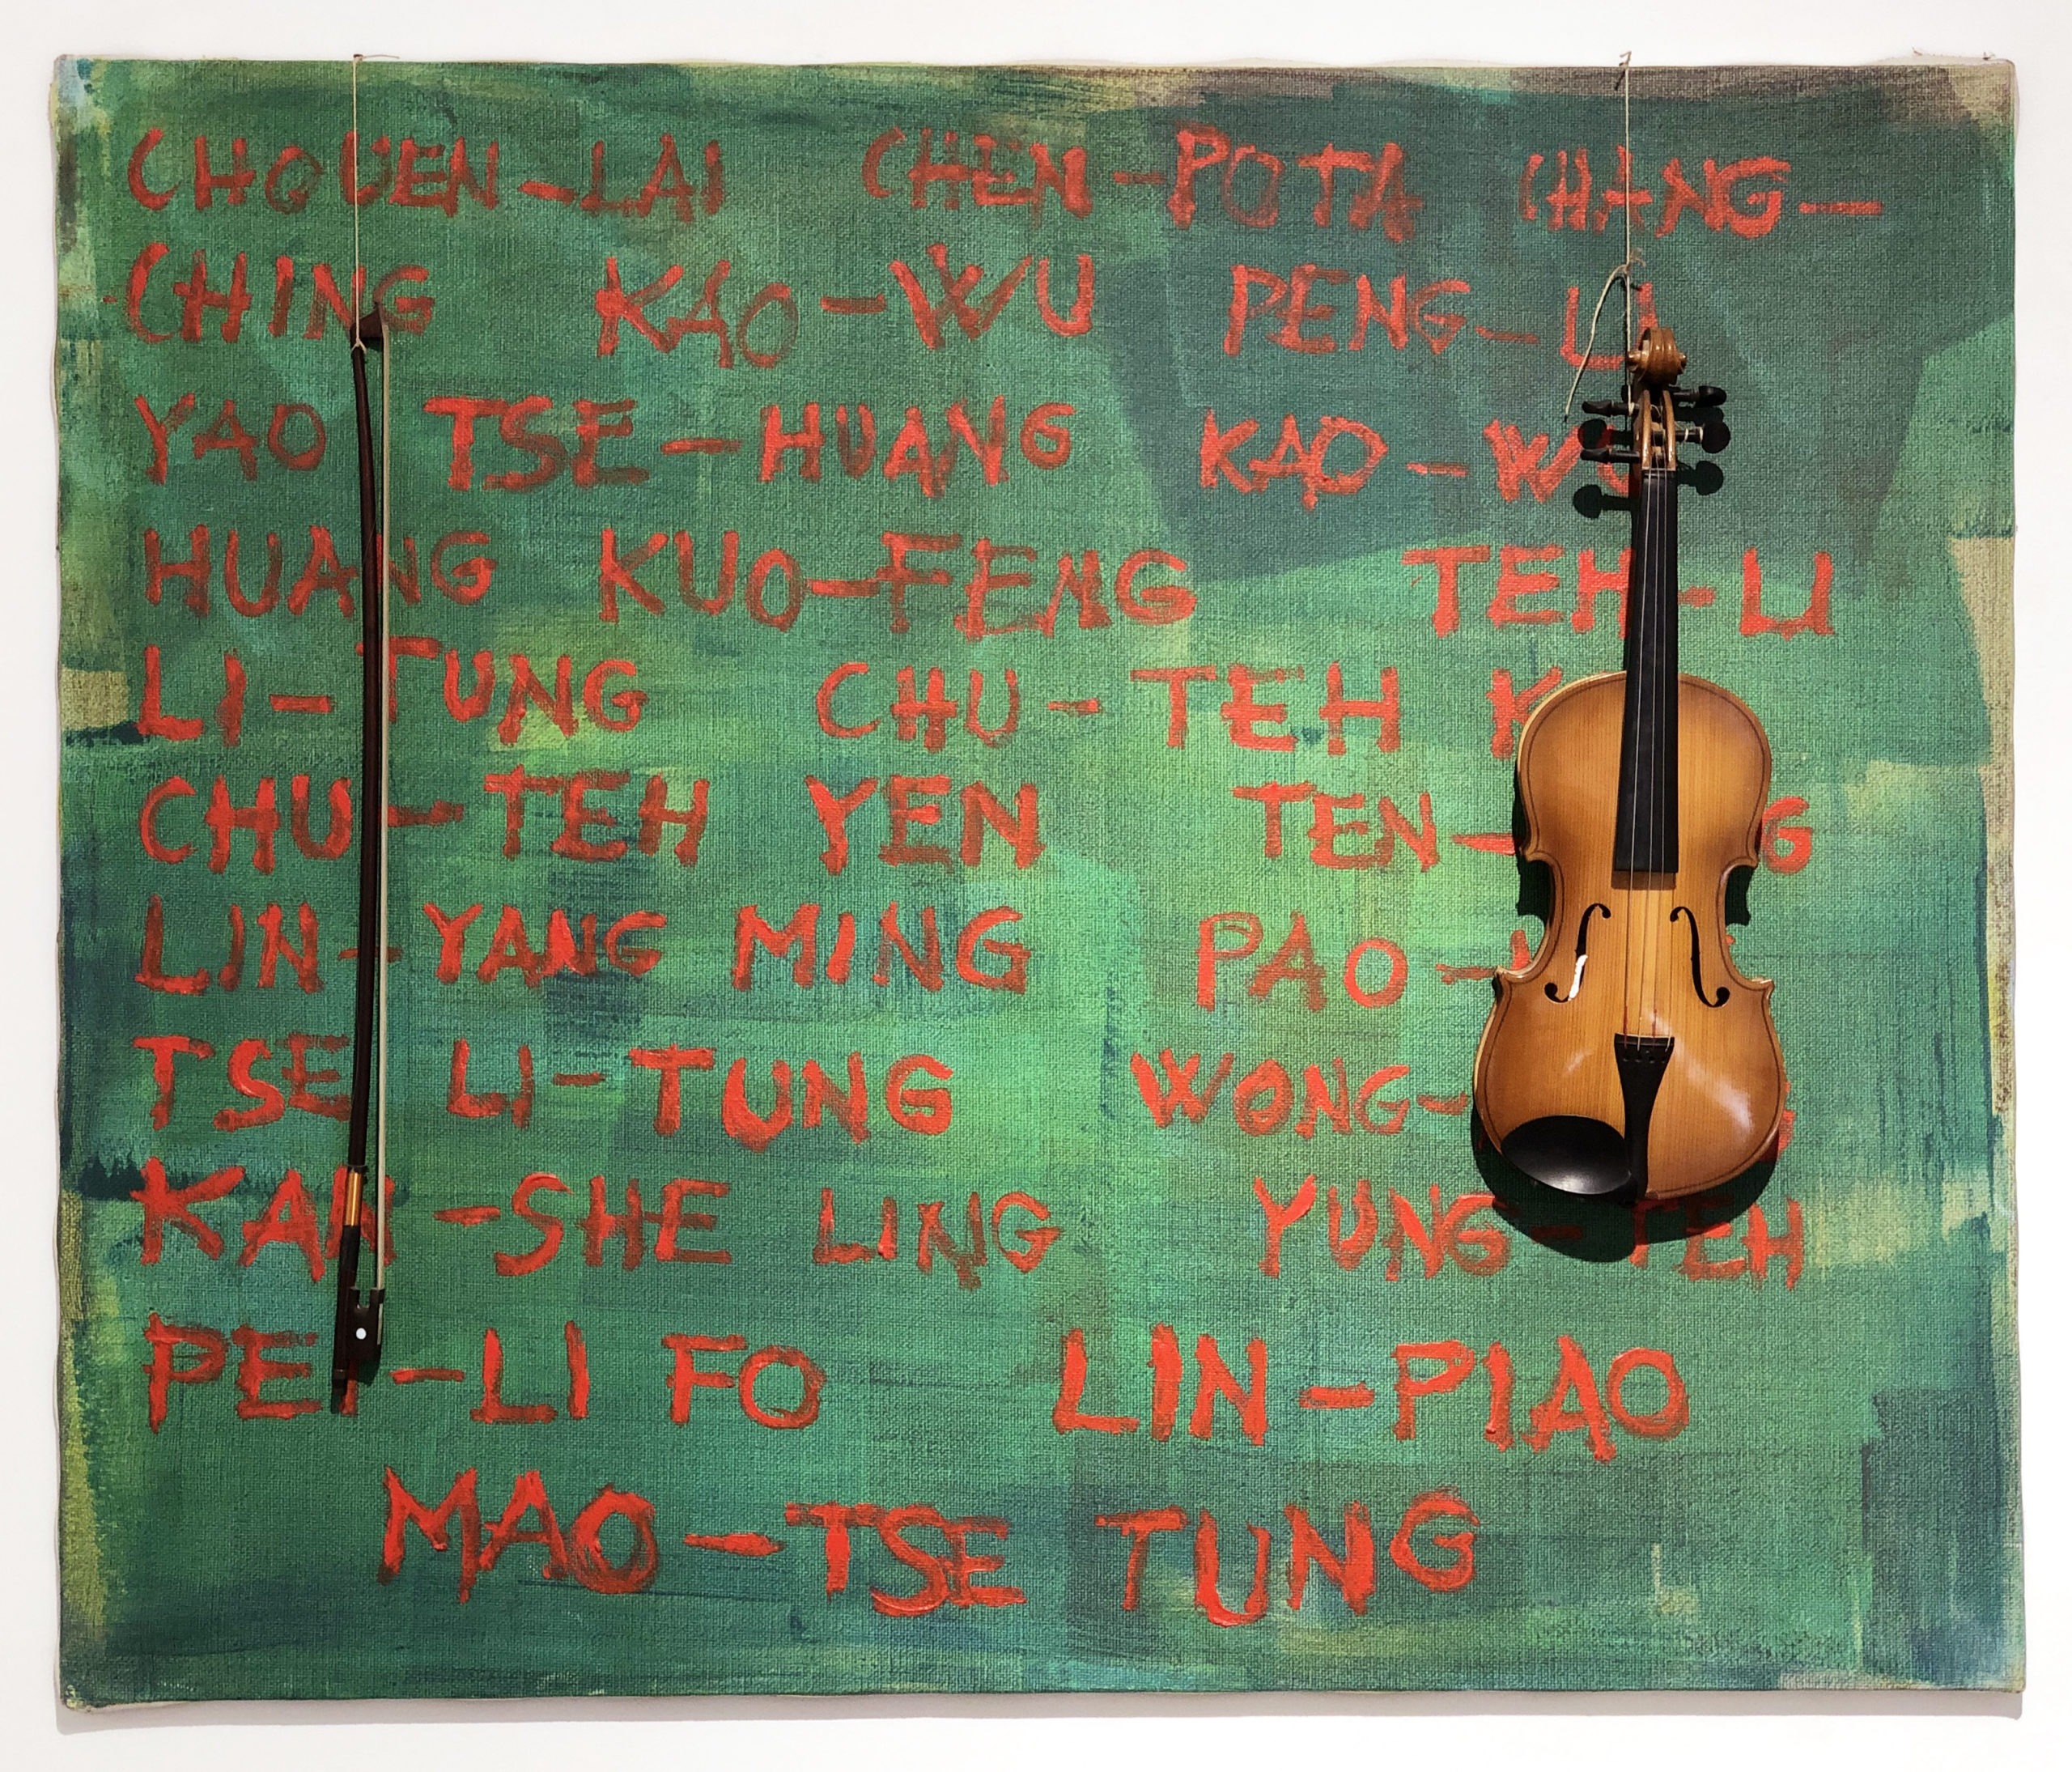 CHOUEN-LAI CHEN-POTA CHANG-
CHING KAO-WU PENG-LI
YAO TSE-HUANG KAO-WU
HUANG KUO-FENG TEH-LI
LI-TUNG CHU-TEH
CHU-TEH YEN
LIN-YANG MING
TSE LI-TUNG
KAN-SHE LING YUNG-TEH
PEI-LI FO LIN-PIAO
MAO-TSE TUNG